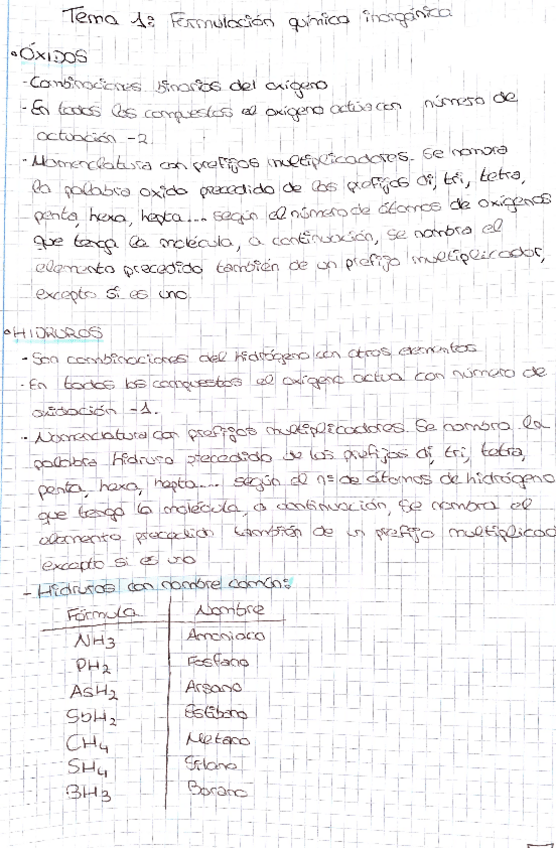 Tema 1: Formulación química inorgánica
• ÓXIDOS
- Combinaciones binarias del oxígeno
- En todos los compuestos el oxígeno actúa con número de
actuación -2.
- Nomenclatura con prefijos multiplicadores. Se nombra
la palabra oxido precedido de los prefijos di, tri, tetra,
penta, hexa, hepta.... según el número de átomos de oxígenos
que tenga la molécula, a continuación, se nombra el
elemento precedido también de un prefijo multiplicador,
excepto si es uno
• HIDRUROS
- Son combinaciones del Hidrógeno con otros elementos
- En todos los compuestos el oxígeno actua con número de
oxidación -1.
- Nomenclatura con prefijos multiplicadores. Se nombra la
palabra Hidruro precedido de los prefijos di, tri, tetra,
penta, hexa, hepta.... según el nº de átomos de hidrógeno
que tenga la molécula, a continuación, se nombra el
elemento precedido también de un prefijo multiplicad
excepto si es uno
- Hidruros con nombre común:
Fórmula Nombre
NH3 Amoniaco
PH2 Fosfano
AsH2 Arsano
SbH2 Estibano
CH4 Metano
SH4 Silano
BH3 Borano